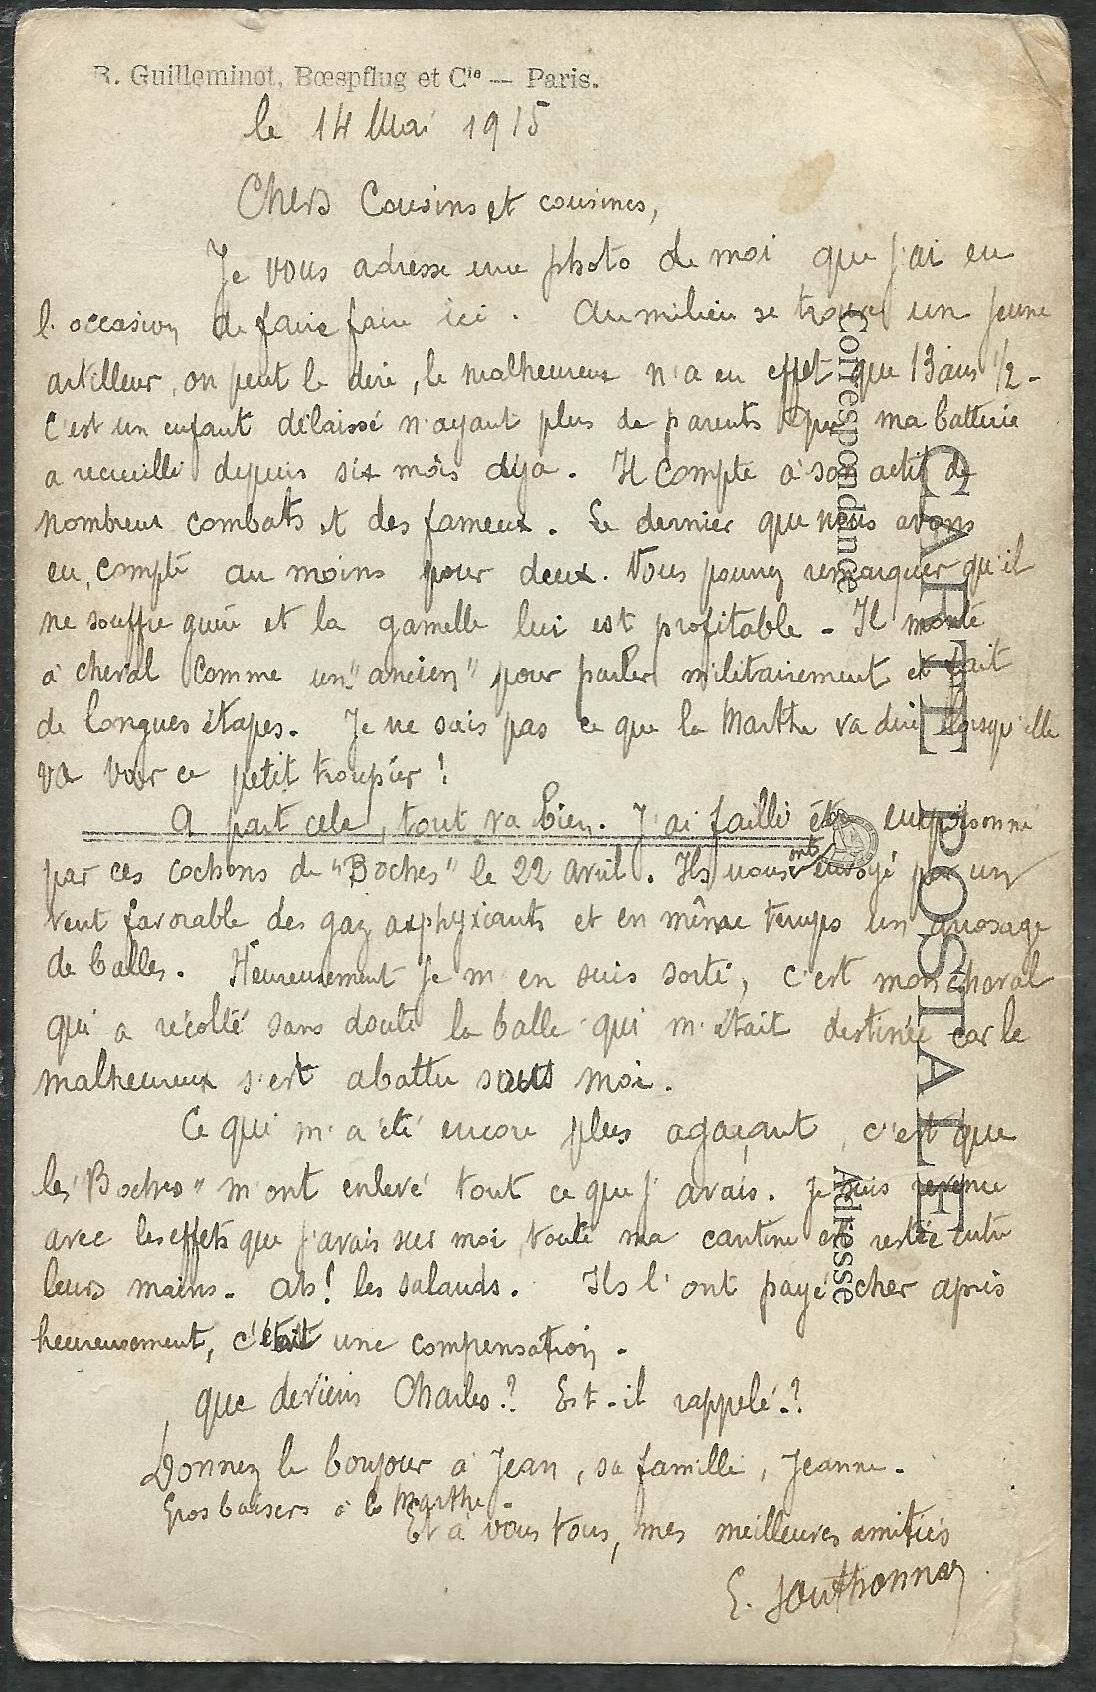 R. Guilleminot, Bœspflug et Cie — Paris.
le 14 Mai 1915
Chers Cousins et cousines,
Je vous adresse une photo de moi que j'ai eu
l'occasion de faire faire ici. Au milieu se trouve un jeune
artilleur, on peut le dire, le malheureux n'a en effet que 13 ans 1/2 -
C'est un enfant délaissé n'ayant plus de parents que ma batterie
a recueilli depuis six mois déja. Il compte à son actif de
nombreux combats et des fameux. Le dernier que nous avons
eu, compte au moins pour deux. Vous pourrez remarquer qu'il
ne souffre guère et la gamelle lui est profitable - Il monte
à cheval comme un "ancien" pour parler militairement et fait
de longues étapes. Je ne sais pas ce que la Marthe va dire lorsqu'elle
va voir ce petit troupier !
A part cela, tout va bien. J'ai failli être empoisonné
par ces cochons de "Boches" le 22 avril. Ils nous ont envoyé par un
vent favorable des gaz asphyxiants et en même temps un arrosage
de balles. Heureusement je m'en suis sorti, c'est mon cheval
qui a récolté sans doute la balle qui m'était destinée car le
malheureux s'est abattu sous moi.
Ce qui m'a été encore plus agaçant, c'est que
les "Boches" m'ont enlevé tout ce que j'avais. Je suis revenu
avec les effets que j'avais sur moi, toute ma cantine est restée entre
leurs mains. Ah! les salauds. Ils l'ont payé cher après
heureusement, c'était une compensation.
que deviens Charles ? Est-il rappelé ?
Donnez le bonjour à Jean, sa famille, Jeanne.
Gros baisers à la Marthe.
Et à vous tous, mes meilleures amitiés
E.
CARTE POSTALE
Correspondance
Adresse